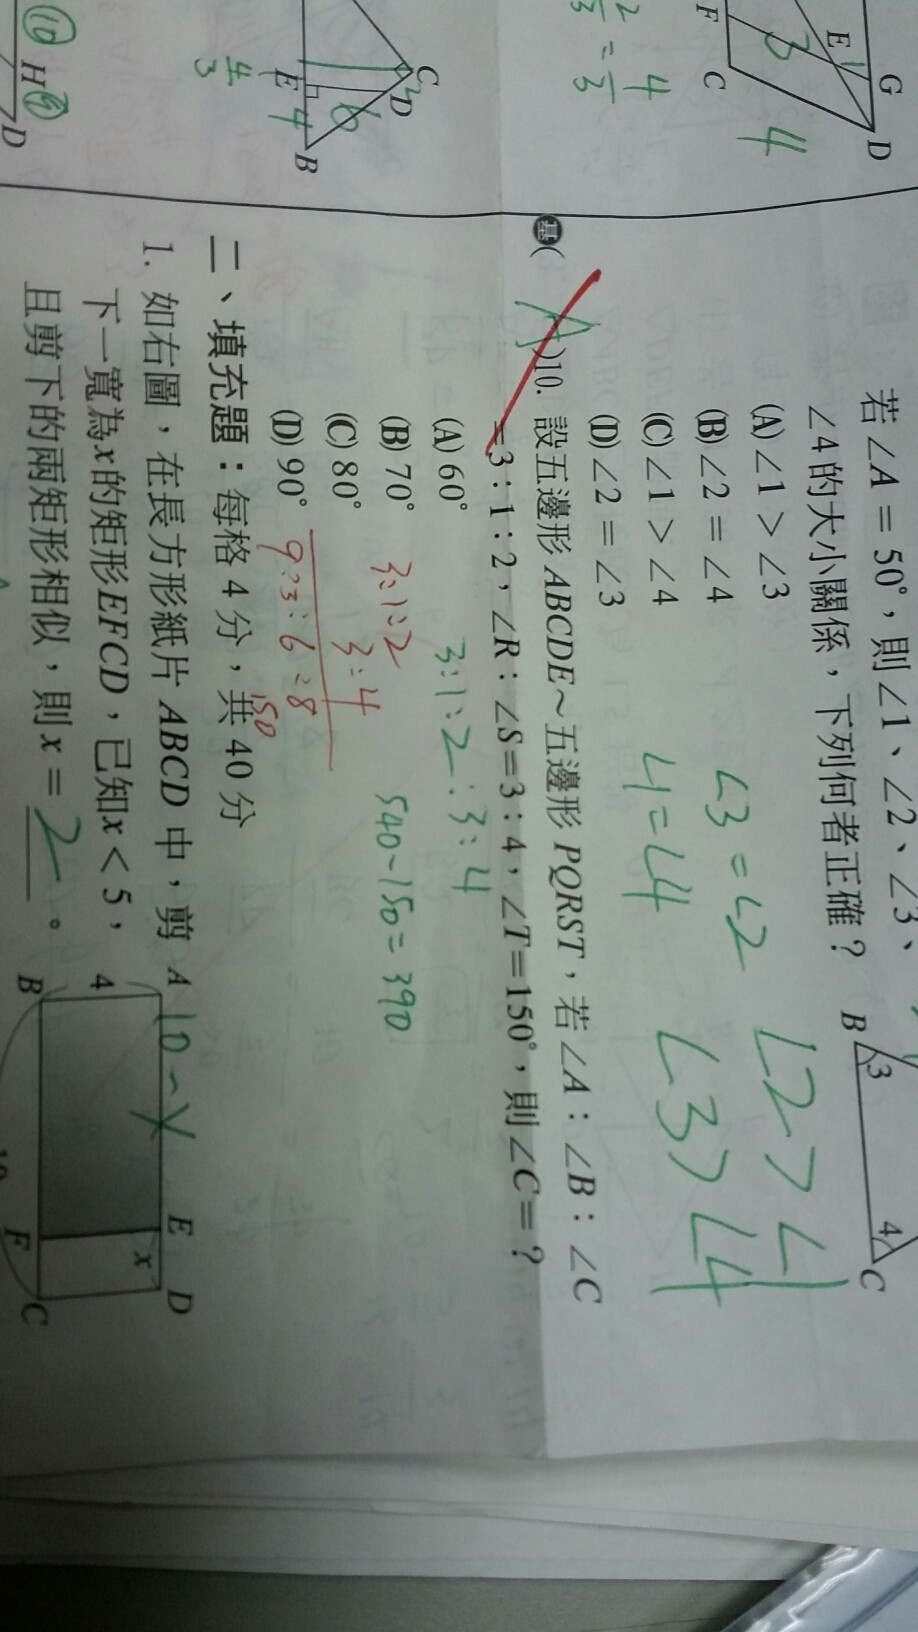 若∠A=50°，則∠1、∠2、∠3、
∠4的大小關係，下列何者正確？
(A)∠1>∠3
(B)∠2=∠4
(C)∠1>∠4
(D)∠2=∠3
∠3=∠2
4=4
∠2>∠1
∠3>∠4
B
3
4
C
基( A )10. 設五邊形ABCDE～五邊形PQRST，若∠A：∠B：∠C
=3：1：2，∠R：∠S=3：4，∠T=150°，則∠C=？
(A)60°
(B)70°
(C)80°
(D)90°
3:1:2:3:4
540-150=390
3:1:2
3:4
9:3:6:8
150
二、填充題：每格4分，共40分
1. 如右圖，在長方形紙片ABCD中，剪
下一寬為x的矩形EFCD，已知x<5，
且剪下的兩矩形相似，則x=2。
A
10-x
E
D
4
x
B
F
C
10
G
E
1
D
3
4
F
C
2/3=4/3
C
D
2
6
E
4
B
4/3
10
H
D